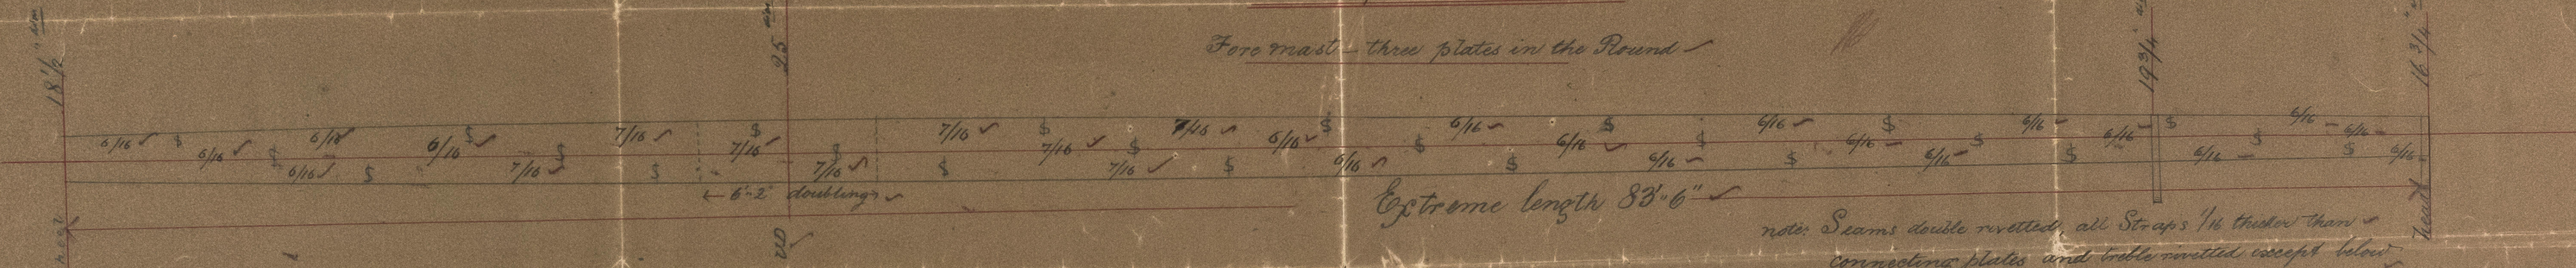 Fore mast - three plates in the Round
18 1/2" dim
25 dim
19 3/4
16 3/4"
6/16 $ 6/16 $ 6/16 6/16 $ 6/16 $ 7/16 $ 7/16 $ 7/16 $ 7/16 $ 7/16 $ 7/16 $ 7/16 $ 7/16 $ 6/16 $ 6/16 $ 6/16 $ 6/16 $ 6/16 $ 6/16 $ 6/16 $ 6/16 $ 6/16 $ 6/16 $ 6/16 $ 6/16 $ 6/16 6/16
← 6'-2" doublings
Extreme length 83'-6"
heel
UD
head
note: Seams double rivetted, all Straps 1/16 thicker than
connecting plates and treble rivetted except below